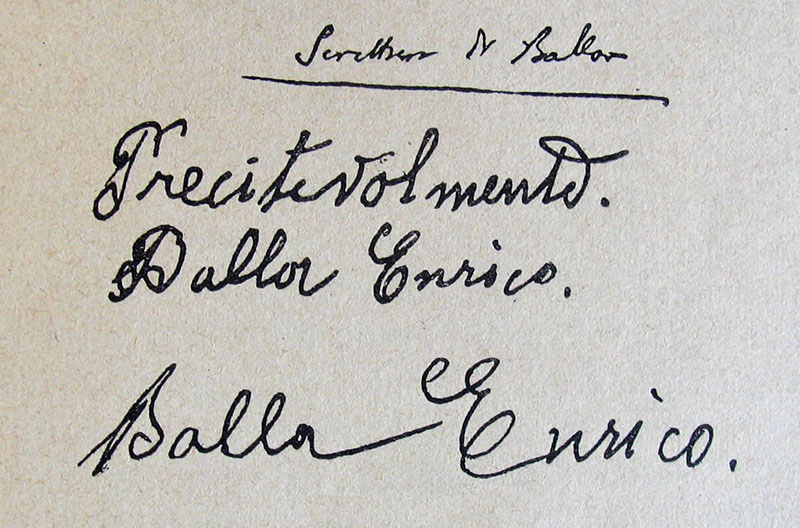 Scrittura di Ballor
Precitevolmente.
Ballor Enrico.
Ballor Enrico.